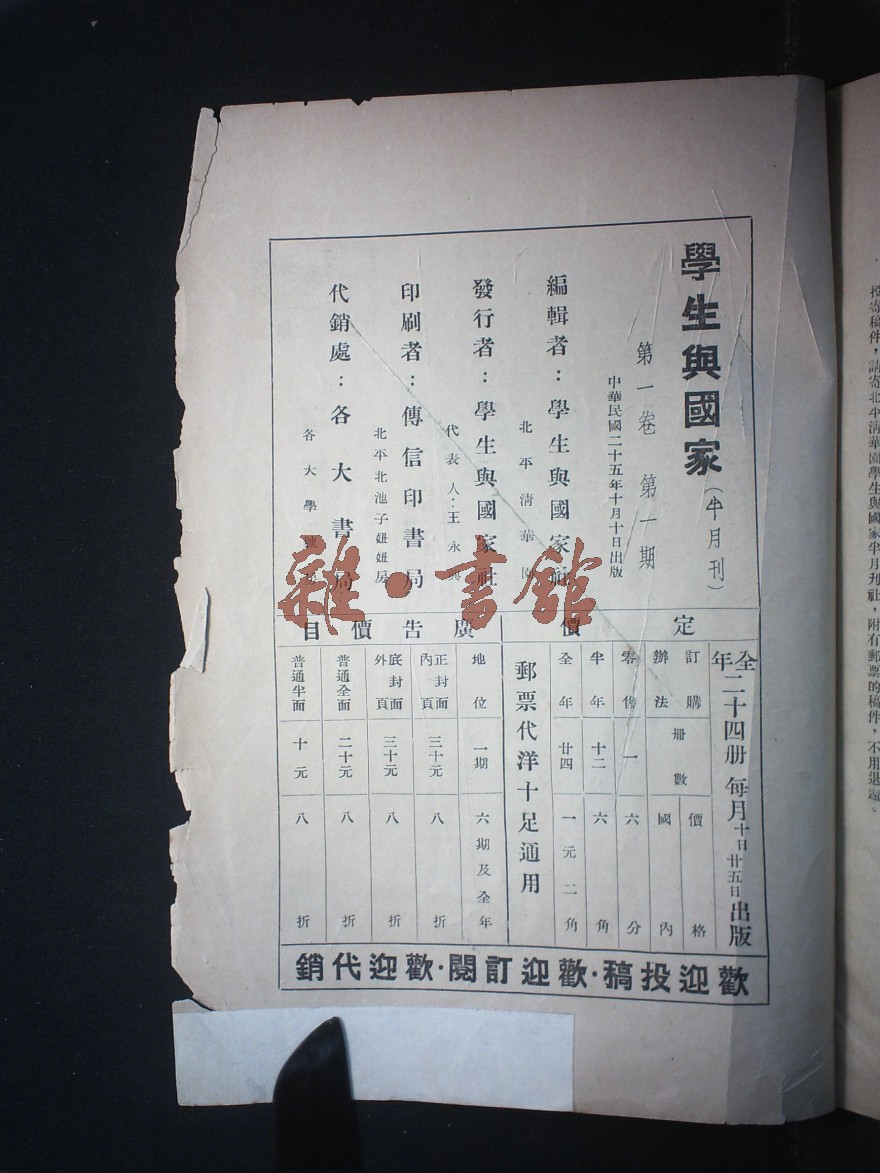 投寄稿件，請寄北平淸華園學生與國家半月刊社，附有郵票的稿件，不用退還。
學生與國家（半月刊）
第一卷 第一期
中華民國二十五年十月十日出版
編輯者：學生與國家社
北平淸華園
發行者：學生與國家社
代表人：王永興
印刷者：傳信印書局
北平北池子妞妞房
代銷處：各大書局
各大學號房
雜·書館
定價
全年二十四册 每月十日廿五日出版
訂購辦法 册數 價格 國內
零售 一 六分
半年 十二 六角
全年 廿四 一元二角
郵票代洋十足通用
廣告價目
地位 一期 六期及全年
正封面內頁 三十元 八折
底封面外頁 三十元 八折
普通全面 二十元 八折
普通半面 十元 八折
歡迎投稿·歡迎訂閱·歡迎代銷